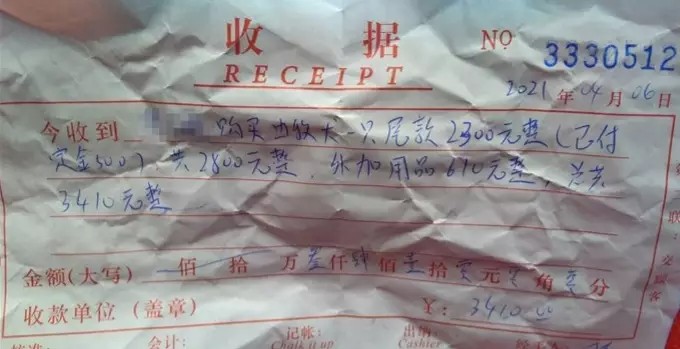 收 据 NO 3330512
RECEIPT
2021 年 04 月 06 日
今收到 购买边牧犬一只尾款2300元整(已付
定金500),共2800元整,外加用品610元整,总共
3410元整
金额(大写) 佰 拾 万 叁仟 肆佰 壹拾 零元 零角 零分
收款单位(盖章) ¥:3410.00
会计: 记帐: 出纳:
Chalk it up Cashier
联 交顾客